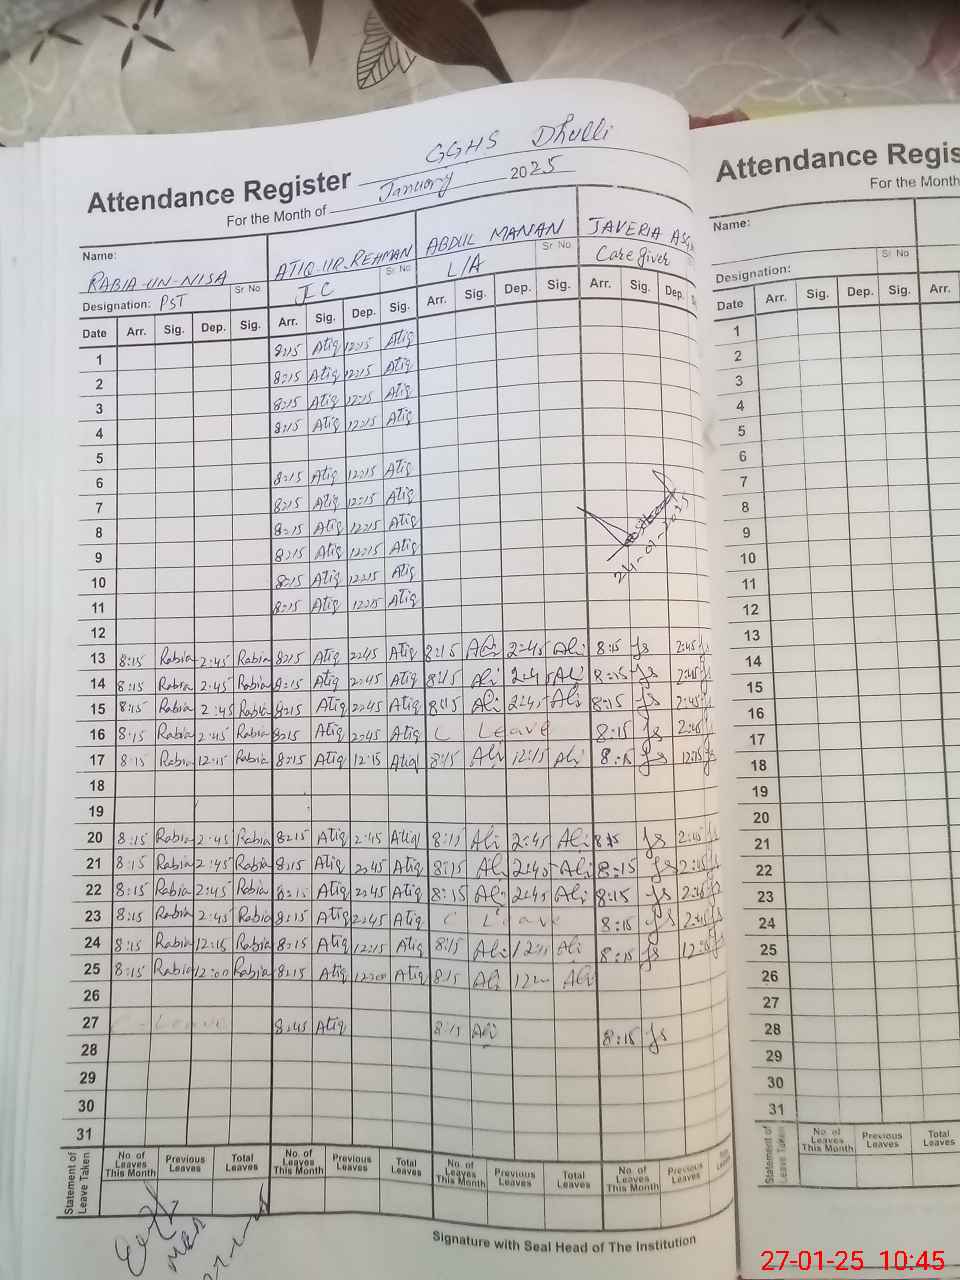 GGHS Dhulli
Attendance Register
For the Month of January 2025
Name: RABIA-UN-NISA ATIQ-UR-REHMAN ABDUL MANAN JAVERIA
Sr No Sr No Sr No
Designation: PST J C L/A Care giver
Date Arr. Sig. Dep. Sig. Arr. Sig. Dep. Sig. Arr. Sig. Dep. Sig. Arr. Sig. Dep.
1 8:15 Atiq 12:15 Atiq
2 8:15 Atiq 12:15 Atiq
3 8:15 Atiq 12:15 Atiq
4 8:15 Atiq 12:15 Atiq
5
6 8:15 Atiq 12:15 Atiq
7 8:15 Atiq 12:15 Atiq
8 8:15 Atiq 12:15 Atiq
9 8:15 Atiq 12:15 Atiq
10 8:15 Atiq 12:15 Atiq
11 8:15 Atiq 12:15 Atiq
24-01-2025
12
13 8:15 Rabia 2:45 Rabia 8:15 Atiq 2:45 Atiq 8:15 Ali 2:45 Ali 8:15 Js 2:45 Js
14 8:15 Rabia 2:45 Rabia 8:15 Atiq 2:45 Atiq 8:15 Ali 2:45 Ali 8:15 Js 2:45 Js
15 8:15 Rabia 2:45 Rabia 8:15 Atiq 2:45 Atiq 8:15 Ali 2:45 Ali 8:15 Js 2:45 Js
16 8:15 Rabia 2:45 Rabia 8:15 Atiq 2:45 Atiq C Leave 8:15 Js 2:45 Js
17 8:15 Rabia 12:15 Rabia 8:15 Atiq 12:15 Atiq 8:15 Ali 12:15 Ali 8:15 Js 12:15 Js
18
19
20 8:15 Rabia 2:45 Rabia 8:15 Atiq 2:45 Atiq 8:15 Ali 2:45 Ali 8:15 Js 2:45 Js
21 8:15 Rabia 2:45 Rabia 8:15 Atiq 2:45 Atiq 8:15 Ali 2:45 Ali 8:15 Js 2:45 Js
22 8:15 Rabia 2:45 Rabia 8:15 Atiq 2:45 Atiq 8:15 Ali 2:45 Ali 8:15 Js 2:45 Js
23 8:15 Rabia 2:45 Rabia 8:15 Atiq 2:45 Atiq C Leave 8:15 Js 2:45 Js
24 8:15 Rabia 12:15 Rabia 8:15 Atiq 12:15 Atiq 8:15 Ali 12:15 Ali 8:15 Js 12:15 Js
25 8:15 Rabia 12:00 Rabia 8:15 Atiq 12:00 Atiq 8:15 Ali Ali
26
27 C - Leave 8:45 Atiq 8:15 Ali 8:15 Js
28
29
30
31
Statement of Leave Taken
No. of Leaves This Month Previous Leaves Total Leaves No. of Leaves This Month Previous Leaves Total Leaves No. of Leaves This Month Previous Leaves Total Leaves No. of Leaves This Month Previous Leaves
Signature with Seal Head of The Institution
Attendance Regis
For the Month
Name:
Sr No
Designation:
Date Arr. Sig. Dep. Sig. Arr.
1
2
3
4
5
6
7
8
9
10
11
12
13
14
15
16
17
18
19
20
21
22
23
24
25
26
27
28
29
30
31
Statement of Leave Taken
No. of Leaves This Month Previous Leaves Total Leaves
27-01-25 10:45